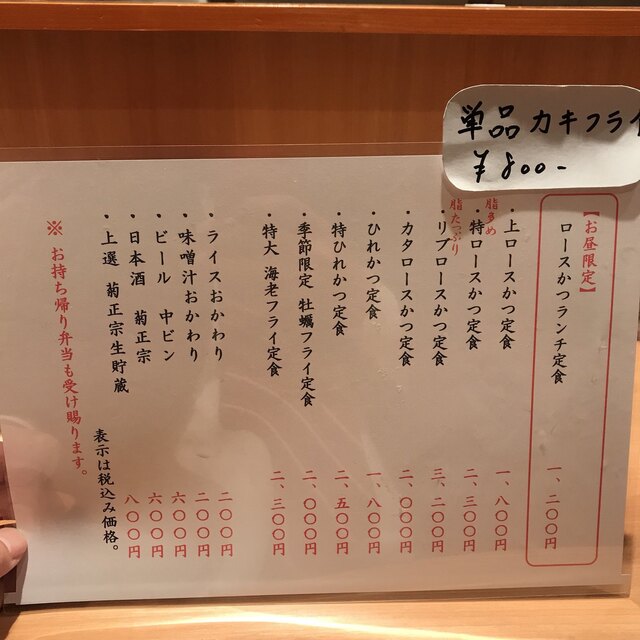 単品カキフライ
¥800-
【お昼限定】
ロースかつランチ定食 一、二〇〇円
・上ロースかつ定食 一、八〇〇円
脂多め
・特ロースかつ定食 二、三〇〇円
脂たっぷり
・リブロースかつ定食 三、二〇〇円
・カタロースかつ定食 二、〇〇〇円
・ひれかつ定食 一、八〇〇円
・特ひれかつ定食 二、五〇〇円
・季節限定 牡蠣フライ定食 二、〇〇〇円
・特大 海老フライ定食 二、三〇〇円
・ライスおかわり 二〇〇円
・味噌汁おかわり 二〇〇円
・ビール 中ビン 六〇〇円
・日本酒 菊正宗 六〇〇円
・上選 菊正宗生貯蔵 八〇〇円
表示は税込み価格。
※ お持ち帰り弁当も受け賜ります。